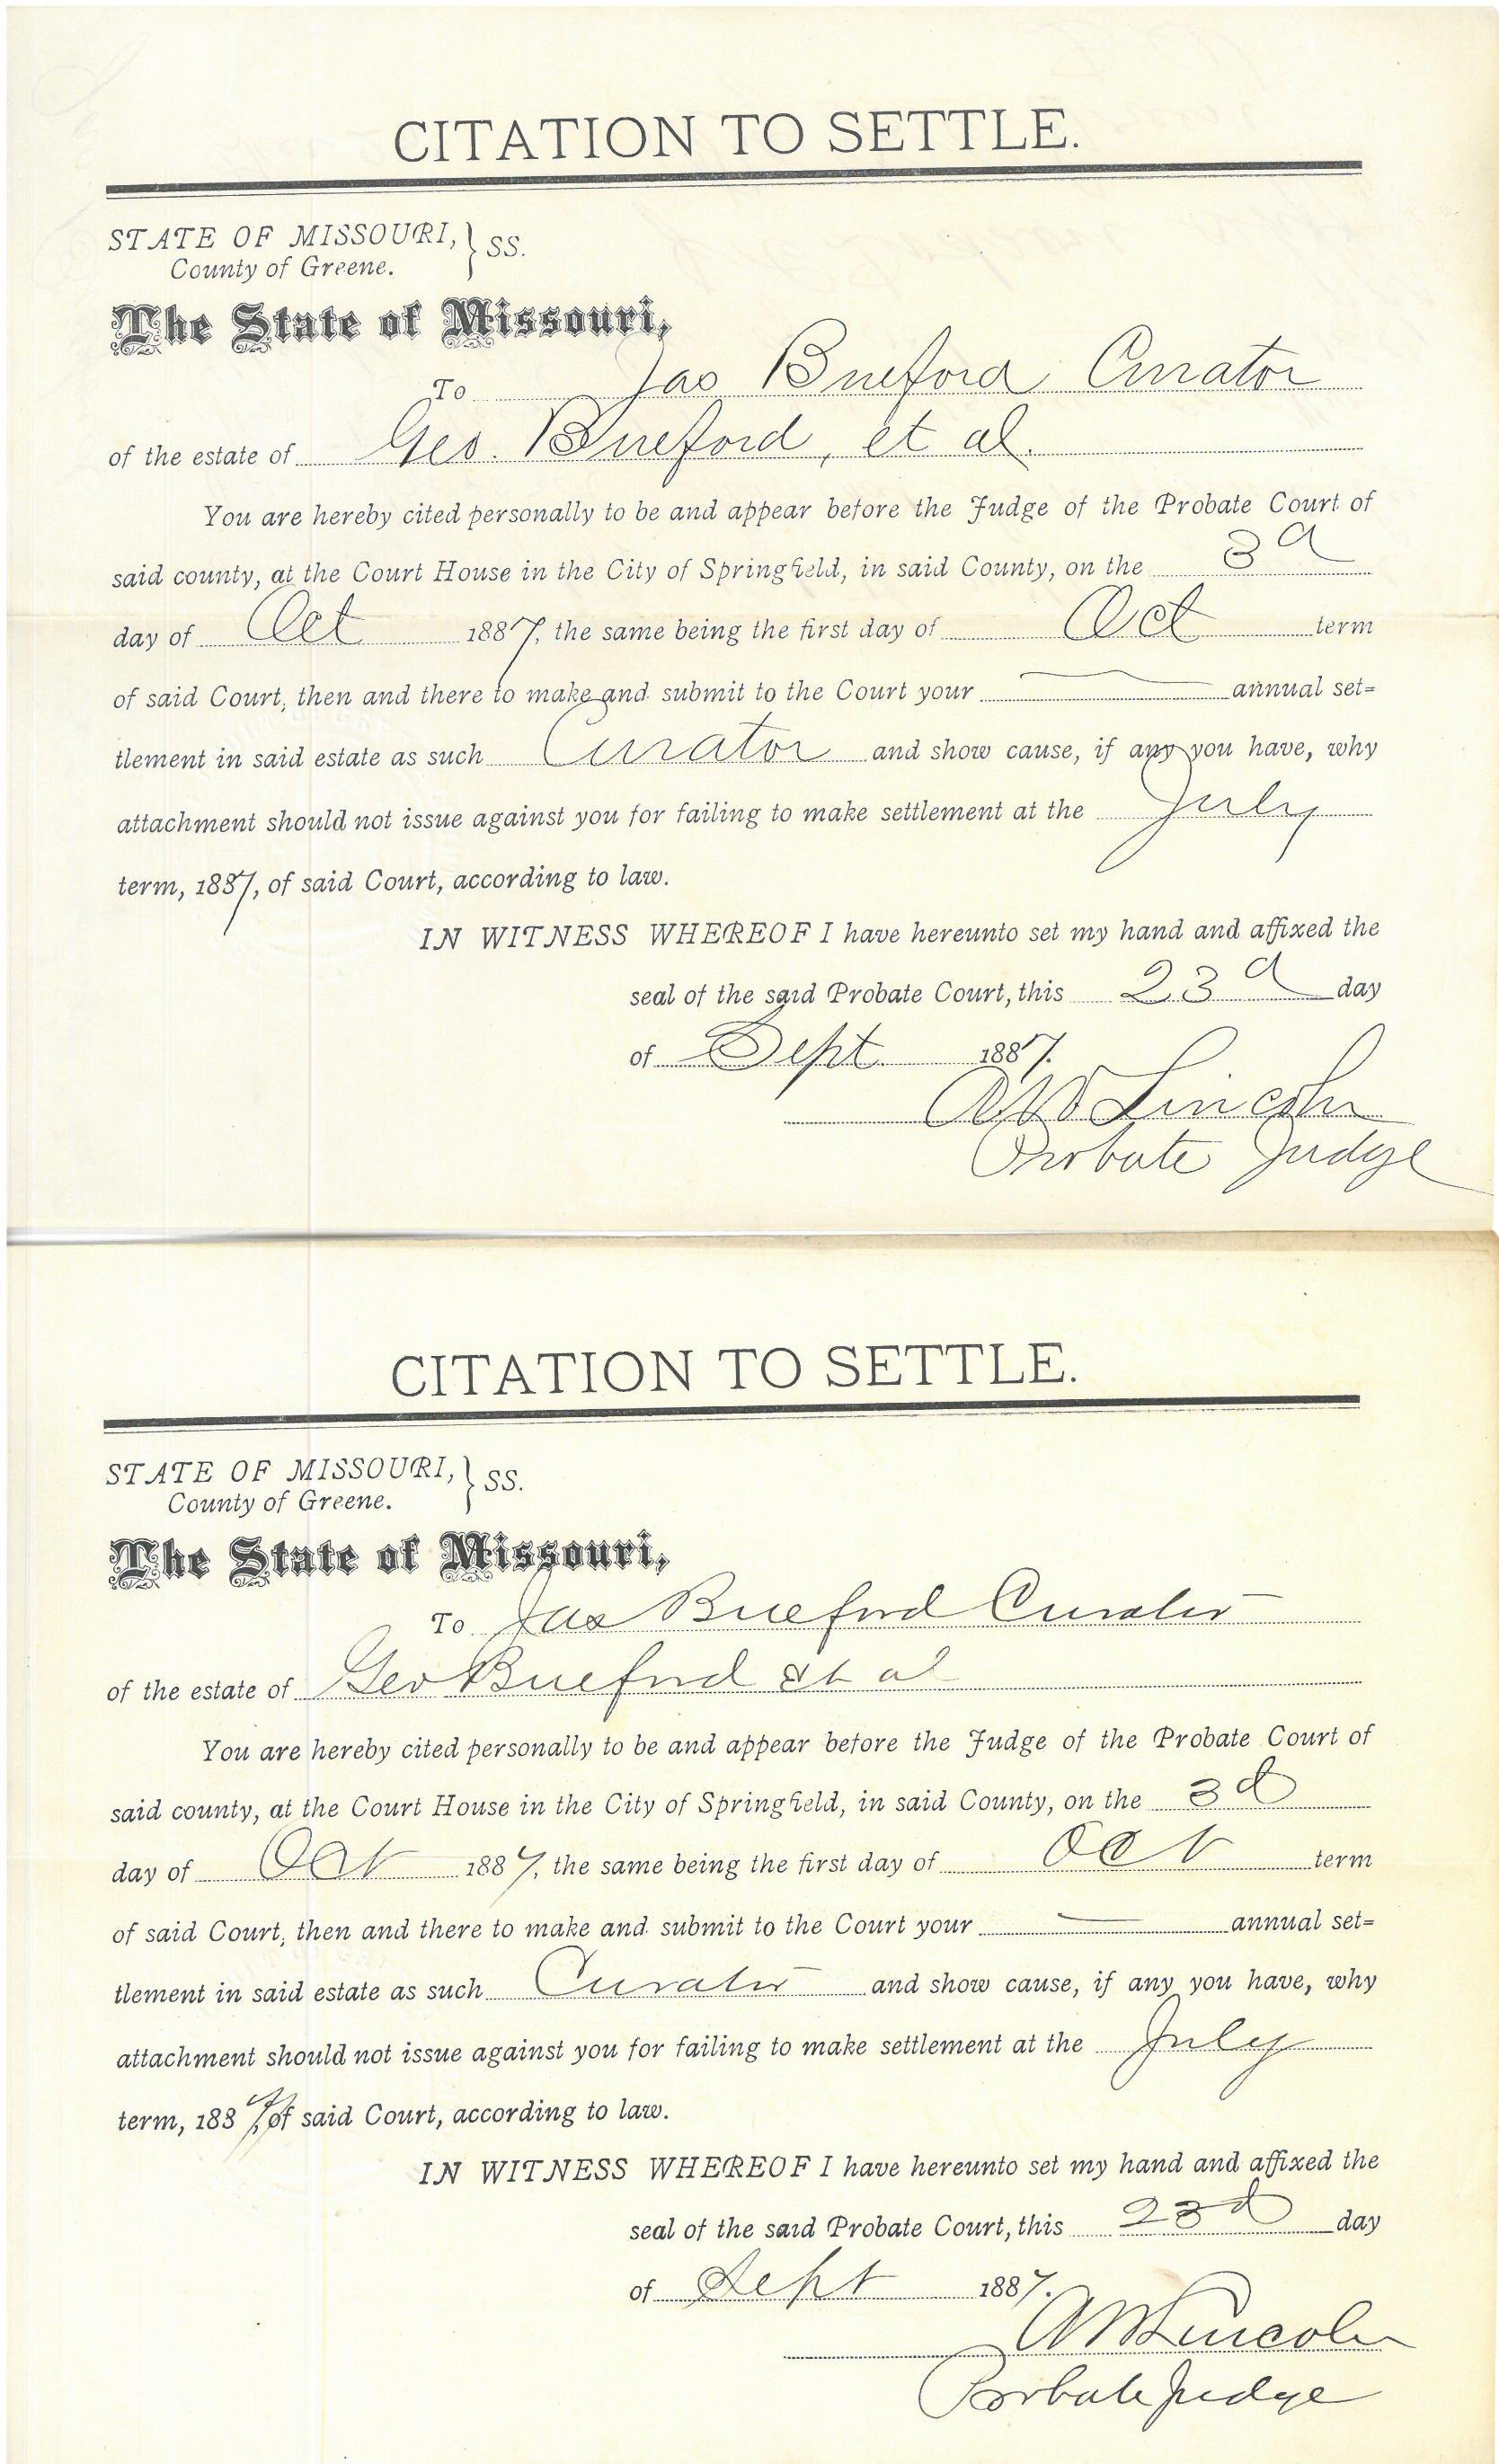 CITATION TO SETTLE.
STATE OF MISSOURI, } SS.
County of Greene.
The State of Missouri,
To Jas Bueford Curator
of the estate of Geo. Bueford, et al.
You are hereby cited personally to be and appear before the Judge of the Probate Court of
said county, at the Court House in the City of Springfield, in said County, on the 3d
day of Oct 1887, the same being the first day of Oct term
of said Court, then and there to make and submit to the Court your — annual set=
tlement in said estate as such Curator and show cause, if any you have, why
attachment should not issue against you for failing to make settlement at the July
term, 1887, of said Court, according to law.
IN WITNESS WHEREOF I have hereunto set my hand and affixed the
seal of the said Probate Court, this 23d day
of Sept. 1887.
A W Lincoln
Probate Judge
CITATION TO SETTLE.
STATE OF MISSOURI, } SS.
County of Greene.
The State of Missouri,
To Jas Bueford Curator
of the estate of Geo Bueford et al
You are hereby cited personally to be and appear before the Judge of the Probate Court of
said county, at the Court House in the City of Springfield, in said County, on the 3d
day of Oct 1887, the same being the first day of Oct term
of said Court, then and there to make and submit to the Court your — annual set=
tlement in said estate as such Curator and show cause, if any you have, why
attachment should not issue against you for failing to make settlement at the July
term, 1887, of said Court, according to law.
IN WITNESS WHEREOF I have hereunto set my hand and affixed the
seal of the said Probate Court, this 23d day
of Sept 1887.
A W Lincoln
Probate Judge